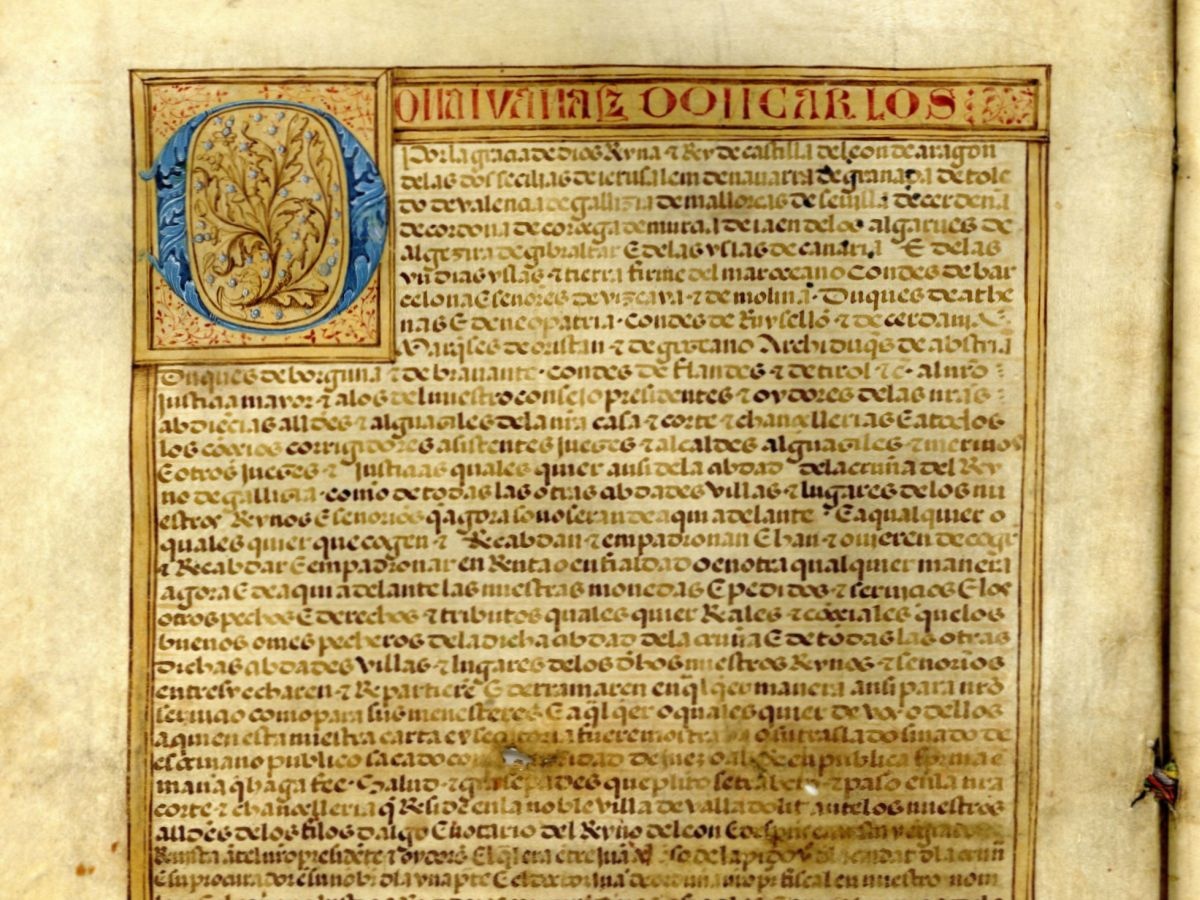 DONA IVANA E DON CARLOS
Por la gracia de dios Reyna & Rey de castilla de leon de aragon
de las dos secilias de ierusalem de navarra de granada de tole
do de valencia de gallizia de mallorcas de sevilla de cerdeña
de cordova de corcega de murcia de iaen de los algarves de
algezira de gibraltar E de las yslas de canaria E de las
yndias yslas & tierra firme del mar oceano Condes de bar
celona E señores de vizcaya & de molina Duques de athe
nas E de neopatria condes de Ruysellõ & de cerdania
Marq̃ses de oristan & de goceano Archiduq̃s de abstria
Duques de borgoña & de bravante condes de flandes & de tirol & c al nr̃o
justicia mayor & a los del nuestro consejo presidentes & oydores de las nr̃as
abdiẽcias alldẽs & alguaziles de la nr̃a casa & corte & chancellerias E a todos
los corregidores asistentes juezes & alcaldes alguaziles & merinos
E otros juezes & justicias quales quier ansi de la cibdad de la cruña del Rey
no de gallizia como de todas las otras cibdades villas & lugares de los nu
estros Reynos E señorios q̃ agora son o seran de aqui adelante E a qual quier o
quales quier que cogen & Recabdan & empadronan E han & ovieren de coger
& Recabdar E empadronar en Renta o en fialdad o en otra qual quier manera
agora E de aqui adelante las nuestras monedas E pedidos & servicios E los
otros pechos E derechos & tributos quales quier Reales & cõcejales que los
buenos omes pecheros de la dicha cibdad de la cruña E de todas las otras
dichas cibdades villas & lugares de los dc̃hos nuestros Reynos & señorios
entre sy echaren & Repartierẽ E derramaren en q̃l q̃er manera ansi para nr̃o
servicio como para sus menesteres E a q̃l q̃er o quales quier de vos o dellos
a quien esta nuestra carta executoria fuere mostrada o su traslado sinado de
escrivano publico sacado con abtoridad de juez o alcalde en publica forma en
manera q̃ haga fee Salud & gracia sepades que pleito se trabto & paso en la nr̃a
corte & chancelleria q̃ Reside en la noble villa de valladolit ante los nuestros
alldẽs de los fijos dalgo E notario del Reyno de leon E despues en
Revista ãte el nr̃o presidẽte & oydores El q̃l era ẽtre juã de la cibdad d la cruña
E su procurador en su nõbre d la vna pte E el doctor nuestro prõ fiscal en nuestro nom